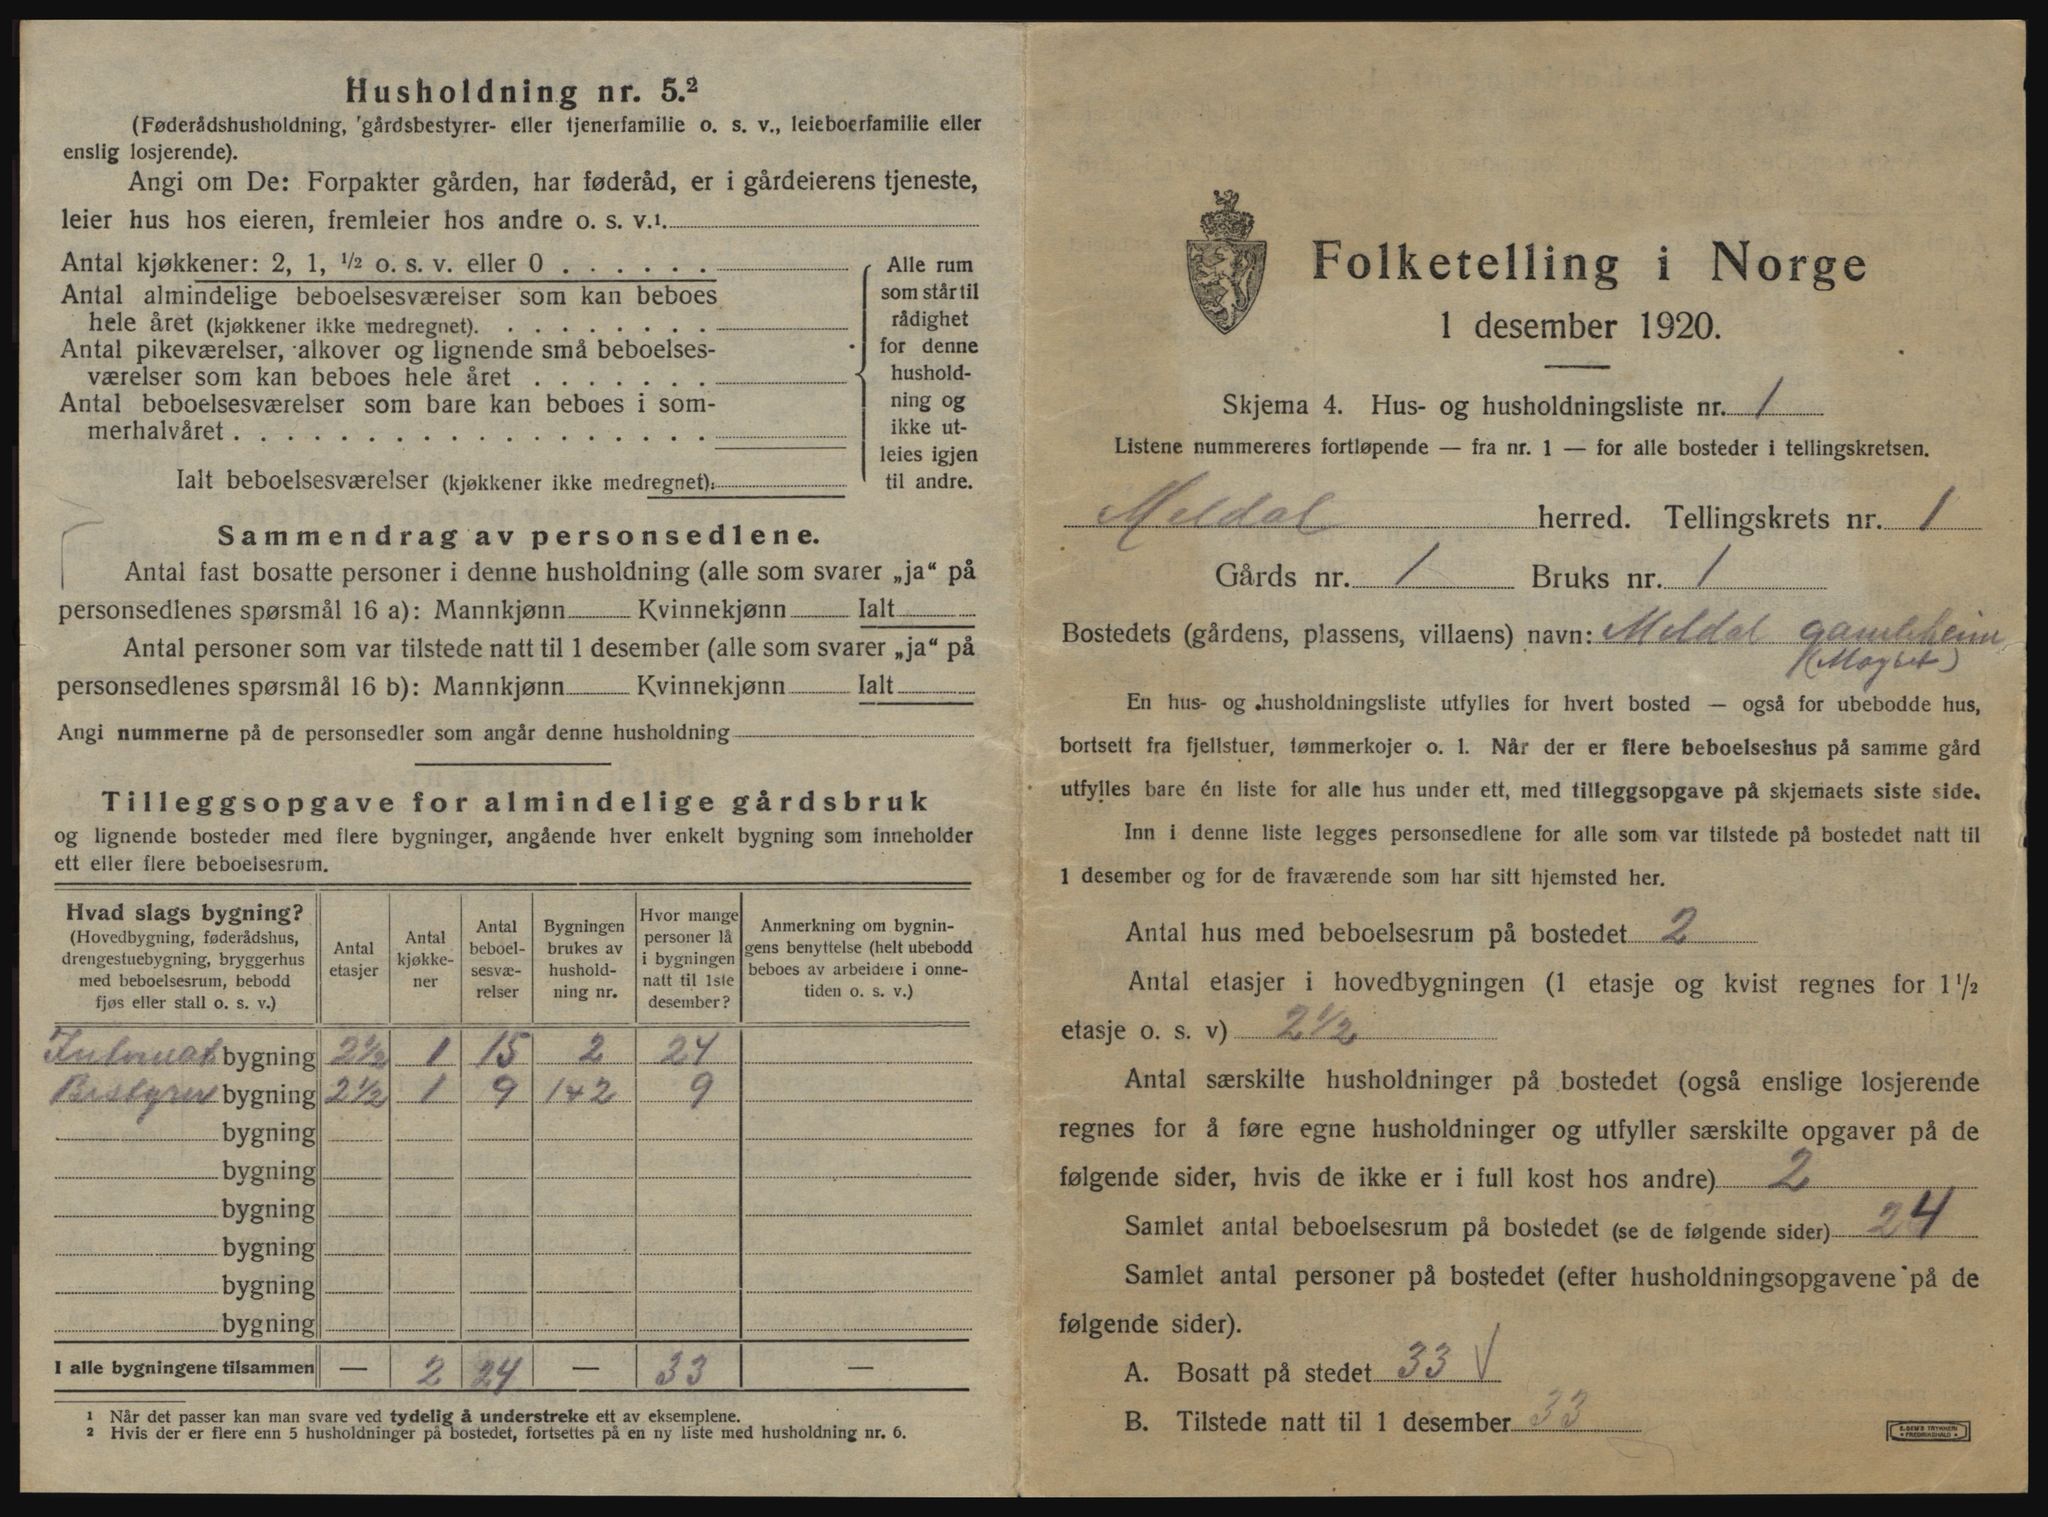 Husholdning nr. 5.²
(Føderådshusholdning, gårdsbestyrer- eller tjenerfamilie o. s. v., leieboerfamilie eller
enslig losjerende).
Angi om De: Forpakter gården, har føderåd, er i gårdeierens tjeneste,
leier hus hos eieren, fremleier hos andre o. s. v.¹
Antal kjøkkener: 2, 1, ½ o. s. v. eller 0 . . . . . .
Antal almindelige beboelsesværelser som kan beboes
hele året (kjøkkener ikke medregnet). . . . . . . . .
Antal pikeværelser, alkover og lignende små beboelses-
værelser som kan beboes hele året . . . . . . .
Antal beboelsesværelser som bare kan beboes i som-
merhalvåret . . . . . . . . . . . . . . . . . .
Ialt beboelsesværelser (kjøkkener ikke medregnet):
Alle rum
som står til
rådighet
for denne
hushold-
ning og
ikke ut-
leies igjen
til andre.
Sammendrag av personsedlene.
Antal fast bosatte personer i denne husholdning (alle som svarer „ja“ på
personsedlenes spørsmål 16 a): Mannkjønn Kvinnekjønn Ialt
Antal personer som var tilstede natt til 1 desember (alle som svarer „ja“ på
personsedlenes spørsmål 16 b): Mannkjønn Kvinnekjønn Ialt
Angi nummerne på de personsedler som angår denne husholdning
Tilleggsopgave for almindelige gårdsbruk
og lignende bosteder med flere bygninger, angående hver enkelt bygning som inneholder
ett eller flere beboelsesrum.
Hvad slags bygning?
(Hovedbygning, føderådshus,
drengestuebygning, bryggerhus
med beboelsesrum, bebodd
fjøs eller stall o. s. v.)
Antal
etasjer
Antal
kjøkke-
ner
Antal
beboel-
sesvæ-
relser
Bygningen
brukes av
hushold-
ning nr.
Hvor mange
personer lå
i bygningen
natt til 1ste
desember?
Anmerkning om bygnin-
gens benyttelse (helt ubebodd
beboes av arbeidere i onne-
tiden o. s. v.)
bygning 2½ 1 15 2 24
Bestyrer bygning 2½ 1 9 1+2 9
bygning
bygning
bygning
bygning
bygning
bygning
I alle bygningene tilsammen — 2 24 — 33 —
¹ Når det passer kan man svare ved tydelig å understreke ett av eksemplene.
² Hvis der er flere enn 5 husholdninger på bostedet, fortsettes på en ny liste med husholdning nr. 6.
Folketelling i Norge
1 desember 1920.
Skjema 4. Hus- og husholdningsliste nr. 1
Listene nummereres fortløpende — fra nr. 1 — for alle bosteder i tellingskretsen.
Meldal herred. Tellingskrets nr. 1
Gårds nr. 1 Bruks nr. 1
Bostedets (gårdens, plassens, villaens) navn: Meldal gamleheim
En hus- og husholdningsliste utfylles for hvert bosted — også for ubebodde hus,
bortsett fra fjellstuer, tømmerkojer o. l. Når der er flere beboelseshus på samme gård
utfylles bare én liste for alle hus under ett, med tilleggsopgave på skjemaets siste side.
Inn i denne liste legges personsedlene for alle som var tilstede på bostedet natt til
1 desember og for de fraværende som har sitt hjemsted her.
Antal hus med beboelsesrum på bostedet 2
Antal etasjer i hovedbygningen (1 etasje og kvist regnes for 1½
etasje o. s. v) 2½
Antal særskilte husholdninger på bostedet (også enslige losjerende
regnes for å føre egne husholdninger og utfyller særskilte opgaver på de
følgende sider, hvis de ikke er i full kost hos andre) 2
Samlet antal beboelsesrum på bostedet (se de følgende sider) 24
Samlet antal personer på bostedet (efter husholdningsopgavene på de
følgende sider).
A. Bosatt på stedet 33 √
B. Tilstede natt til 1 desember 33